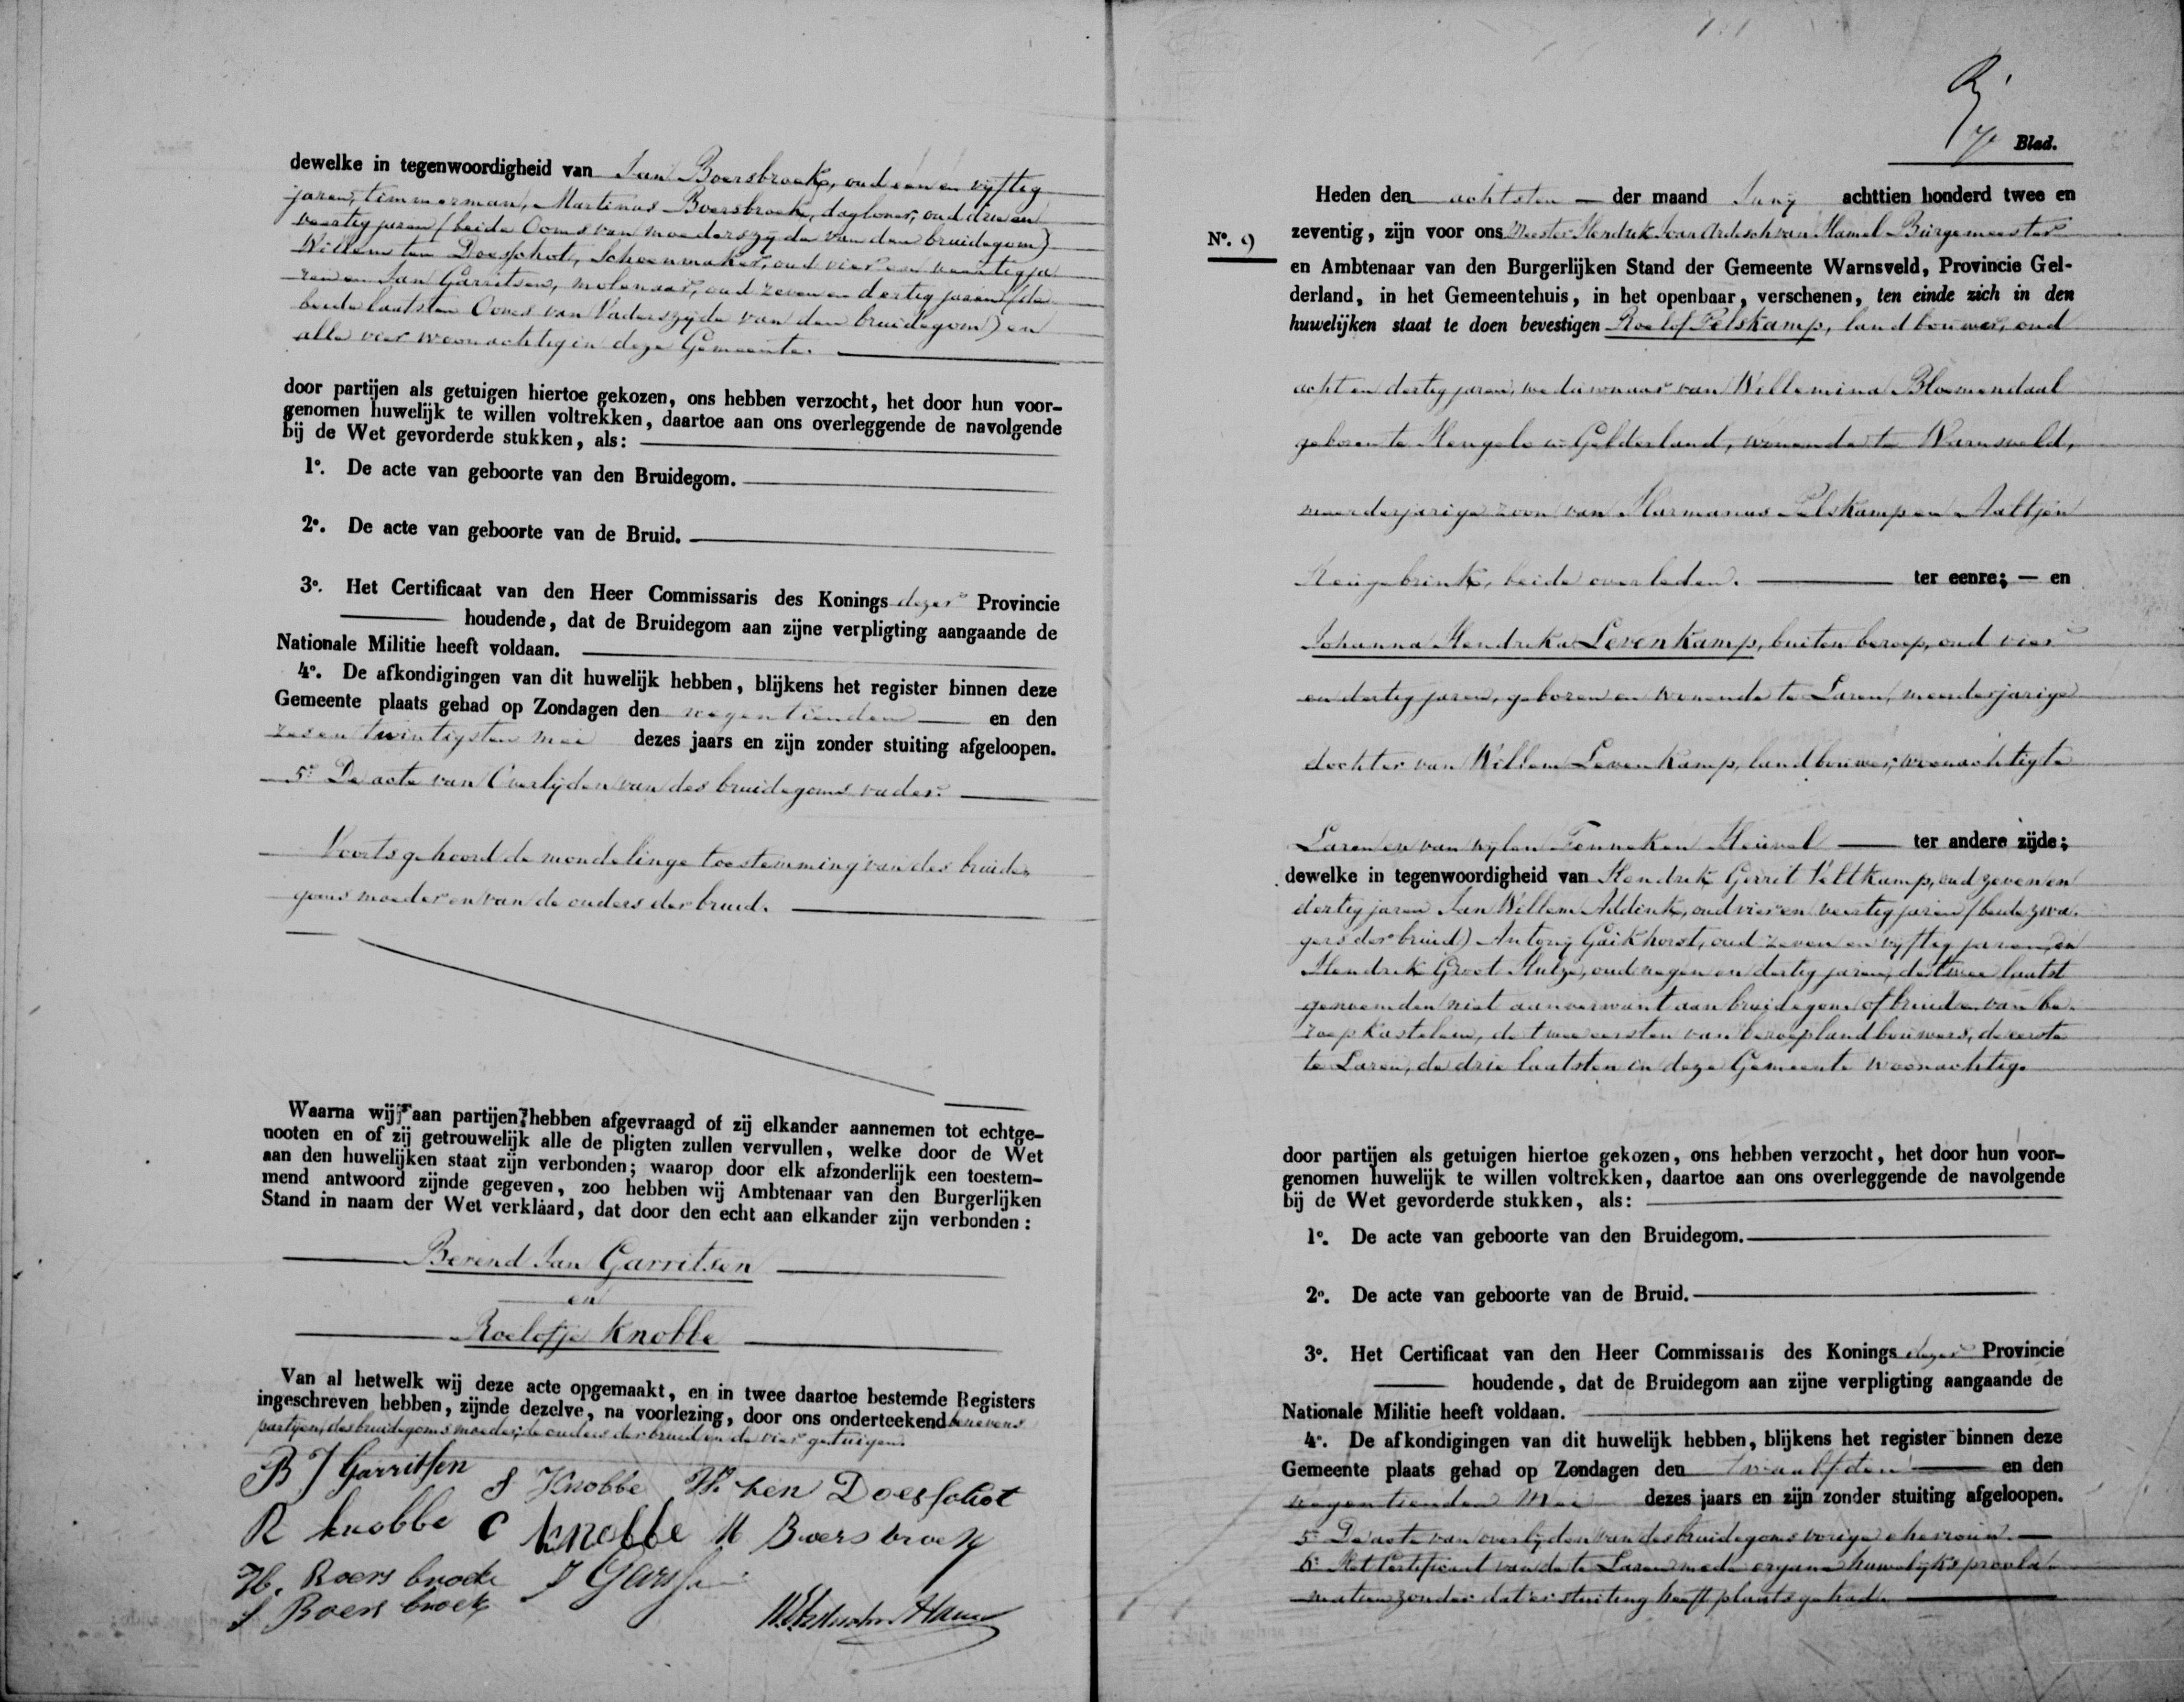 dewelke in tegenwoordigheid van Jan Boersbroek, oud een en vijftig
jaren, timmerman, Martinus Boersbroek, daglooner, oud drie en
veertig jaren (beide Ooms van moederszijde van den bruidegom)
Willem ten Doesschot, Schoenmaker, oud vier en veertig ja
ren en Jan Garritsen, molenaar, oud zeven en dertig jaren (de
beide laatsten Ooms van Vaderszijde van den bruidegom) en
alle vier woonachtig in deze Gemeente.
door partijen als getuigen hiertoe gekozen, ons hebben verzocht, het door hun voor-
genomen huwelijk te willen voltrekken, daartoe aan ons overleggende de navolgende
bij de Wet gevorderde stukken, als:
1º. De acte van geboorte van den Bruidegom.
2º. De acte van geboorte van de Bruid.
3º. Het Certificaat van den Heer Commissaris des Konings dezer Provincie
houdende, dat de Bruidegom aan zijne verpligting aangaande de
Nationale Militie heeft voldaan.
4º. De afkondigingen van dit huwelijk hebben, blijkens het register binnen deze
Gemeente plaats gehad op Zondagen den negentienden en den
zes en twintigsten mei dezes jaars en zijn zonder stuiting afgeloopen.
5º De acte van Overlijden van des bruidegoms vader.
Voorts gehoord de mondelinge toestemming van des bruide-
goms moeder en van de ouders der bruid.
Waarna wij aan partijen hebben afgevraagd of zij elkander aannemen tot echtge-
nooten en of zij getrouwelijk alle de pligten zullen vervullen, welke door de Wet
aan den huwelijken staat zijn verbonden; waarop door elk afzonderlijk een toestem-
mend antwoord zijnde gegeven, zoo hebben wij Ambtenaar van den Burgerlijken
Stand in naam der Wet verklaard, dat door den echt aan elkander zijn verbonden:
Berend Jan Garritsen
en
Roelofje Knobbe
Van al hetwelk wij deze acte opgemaakt, en in twee daartoe bestemde Registers
ingeschreven hebben, zijnde dezelve, na voorlezing, door ons onderteekend benevens
partijen, des bruidegoms moeder, de ouders der bruid en de vier getuigen.
B J Garritsen
J Knobbe W. ten Doesschot
R knobbe C knobbe M Boersbroek
H. Boersbroek J Garrits
J Boersbroek
7e Blad.
Nº. 9
Heden den achtsten der maand Junij achttien honderd twee en
zeventig, zijn voor ons Meester Hendrik Joan Ardesch van Hamel Burgemeester
en Ambtenaar van den Burgerlijken Stand der Gemeente Warnsveld, Provincie Gel-
derland, in het Gemeentehuis, in het openbaar, verschenen, ten einde zich in den
huwelijken staat te doen bevestigen Roelof Pelskamp, landbouwer, oud
acht en dertig jaren, weduwnaar van Willemina Bloemendaal
geboren te Hengelo in Gelderland, wonende te Warnsveld,
meerderjarige zoon van Harmanus Pelskamp en Aaltjen
Reugebrink, beide overleden. ter eenre; — en
Johanna Hendrika Levenkamp, buiten beroep, oud vier
en dertig jaren, geboren en wonende te Laren, meerderjarige
dochter van Willem Levenkamp, landbouwer, woonachtig te
Laren en van wijlen Fenneken Heuvel ter andere zijde;
dewelke in tegenwoordigheid van Hendrik Gerrit Veltkamp, oud zeven en
dertig jaren Jan Willem Addink, oud vier en veertig jaren (beide zwa-
gers der bruid) Antonij Gaikhorst, oud zeven en vijftig jaren, en
Hendrik Groot Hulze, oud negen en dertig jaren, de twee laatst
genoemden niet aanverwant aan bruidegom of bruid en van be-
roep Kastelein, de twee eersten van beroep landbouwers, de eerste
te Laren, de drie laatsten in deze Gemeente woonachtig.
door partijen als getuigen hiertoe gekozen, ons hebben verzocht, het door hun voor-
genomen huwelijk te willen voltrekken, daartoe aan ons overleggende de navolgende
bij de Wet gevorderde stukken, als:
1º. De acte van geboorte van den Bruidegom.
2º. De acte van geboorte van de Bruid.
3º. Het Certificaat van den Heer Commissaris des Konings dezer Provincie
houdende, dat de Bruidegom aan zijne verpligting aangaande de
Nationale Militie heeft voldaan.
4º. De afkondigingen van dit huwelijk hebben, blijkens het register binnen deze
Gemeente plaats gehad op Zondagen den twaalfden en den
negentienden Mei dezes jaars en zijn zonder stuiting afgeloopen.
5º De acte van overlijden van des bruidegoms vorige ehevrouw.
6º Het Certificaat van de te Laren mede ergane huwelijks procla-
matien zonder dat er stuiting heeft plaats gehad.